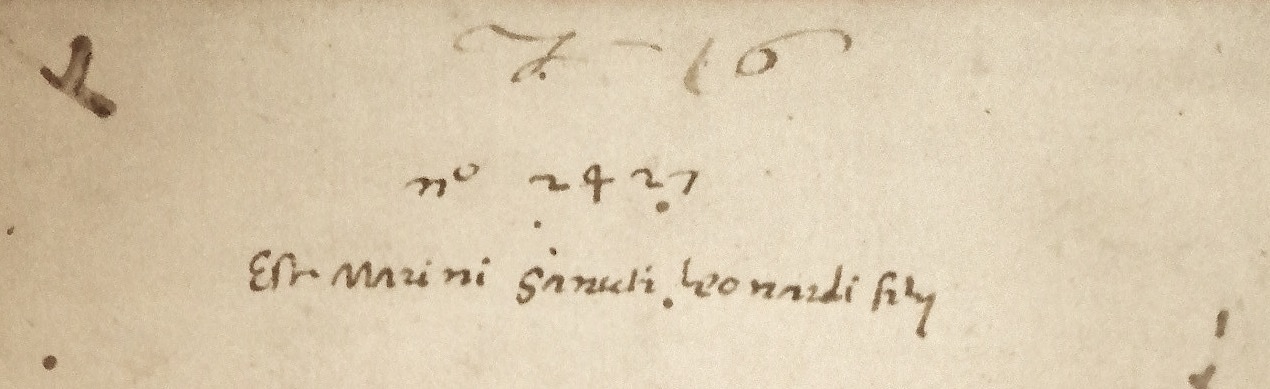 nº 2427
Est Marini Sanuti Leonardi filij